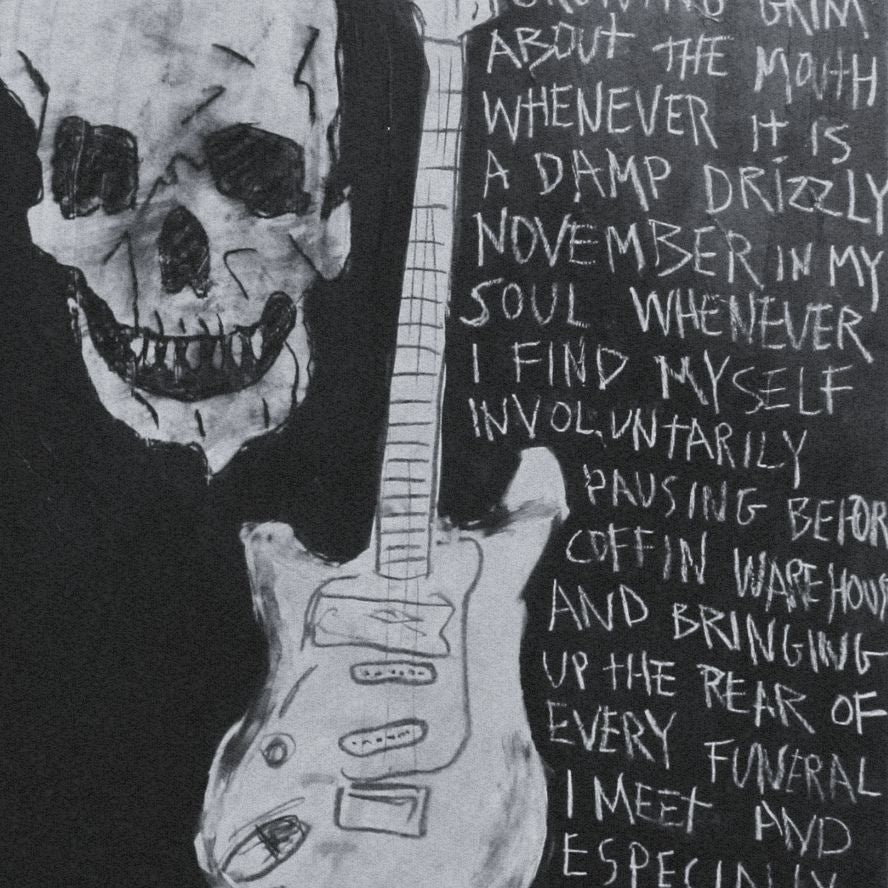 GRIM
ABOUT THE MOUTH
WHENEVER IT IS
A DAMP DRIZZLY
NOVEMBER IN MY
SOUL WHENEVER
I FIND MYSELF
INVOLUNTARILY
PAUSING BEFOR
COFFIN WAREHOUS
AND BRINGING
UP THE REAR OF
EVERY FUNERAL
I MEET AND
ESPECIALLY